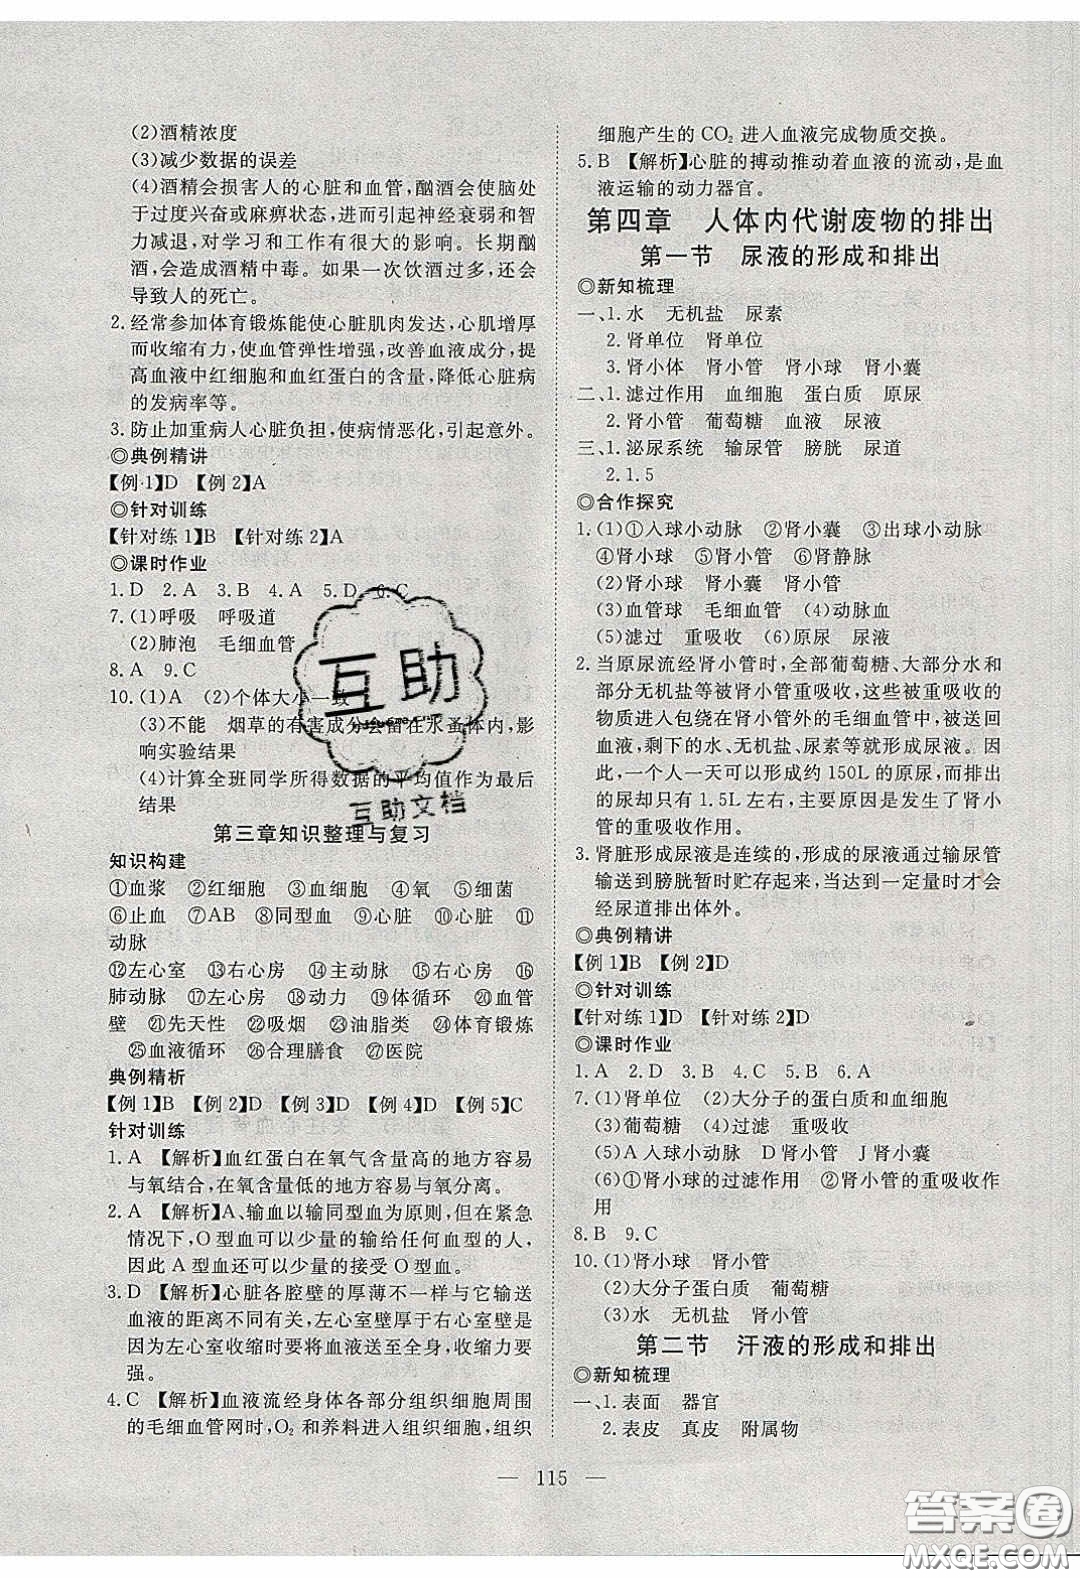 (2)酒精浓度
(3)减少数据的误差
(4)酒精会损害人的心脏和血管,酗酒会使大脑处
于过度兴奋或麻痹状态,引起神经衰弱和智
力减退,对学习和工作有很大的影响。长期酗
酒,会造成酒精中毒。如果一次饮酒过多,还会
导致人的死亡。
2.经常参加体育锻炼能使心脏肌肉发达,心肌增厚
而收缩有力,使血管弹性增强,改善血液成分,提
高血液中红细胞和血红蛋白的含量,降低心脏病
的发病率等。
3.防止加重病人心脏负担,使病情恶化,引起意外。
◎典例精讲
【例1】D 【例2】A
◎针对训练
【针对练1】B 【针对练2】A
◎课时作业
1.D 2.A 3.B 4.A 5.D 6.C
7.(1)呼吸 呼吸道
(2)肺泡 毛细血管
8.A 9.C
10.(1)A (2)个体大小一致
(3)不能 烟草的有害成分会留在水蚤体内,影
响实验结果
(4)计算全班同学所得数据的平均值作为最后
结果
第三章知识整理与复习
知识构建
①血浆 ②红细胞 ③血细胞 ④氧 ⑤细菌
⑥止血 ⑦AB ⑧同型血 ⑨心脏 ⑩心脏 ⑪
动脉
⑫左心室 ⑬右心房 ⑭主动脉 ⑮右心房 ⑯
肺动脉 ⑰左心房 ⑱动力 ⑲体循环 ⑳血管
壁 ㉑先天性 ㉒吸烟 ㉓油脂类 ㉔体育锻炼
㉕血液循环 ㉖合理膳食 ㉗医院
典例精析
【例1】B 【例2】D 【例3】D 【例4】D 【例5】C
针对训练
1.A 【解析】血红蛋白在氧气含量高的地方容易
与氧结合,在氧含量低的地方容易与氧分离。
2.A 【解析】A、输血以输同型血为原则,但在紧急
情况下,O型血可以少量的输给任何血型的人,
因此A型血还可以少量的接受O型血。
3.D 【解析】心脏各腔壁的厚薄不一样与它输送
血液的距离不同有关,左心室壁厚于右心室壁是
因为左心室收缩时要将血液送至全身,收缩力要
强。
4.C 【解析】血液流经身体各部分组织细胞周围
的毛细血管网时,O₂和养料进入组织细胞,组织
细胞产生的CO₂进入血液完成物质交换。
5.B 【解析】心脏的搏动推动着血液的流动,是血
液运输的动力器官。
第四章 人体内代谢废物的排出
第一节 尿液的形成和排出
◎新知梳理
一、1.水 无机盐 尿素
2.肾单位 肾单位
3.肾小体 肾小管 肾小球 肾小囊
二、1.滤过作用 血细胞 蛋白质 原尿
2.肾小管 葡萄糖 血液 尿液
三、1.泌尿系统 输尿管 膀胱 尿道
2.1.5
◎合作探究
1.(1)①入球小动脉 ②肾小囊 ③出球小动脉
④肾小球 ⑤肾小管 ⑥肾静脉
(2)肾小球 肾小囊 肾小管
(3)血管球 毛细血管 (4)动脉血
(5)滤过 重吸收 (6)原尿 尿液
2.当原尿流经肾小管时,全部葡萄糖、大部分水和
部分无机盐等被肾小管重吸收,这些被重吸收的
物质进入包绕在肾小管外的毛细血管中,被送回
血液,剩下的水、无机盐、尿素等就形成尿液。因
此,一个人一天可以形成约150L的原尿,而排出
的尿却只有1.5L左右,主要原因是发生了肾小
管的重吸收作用。
3.肾脏形成尿液是连续的,形成的尿液通过输尿管
输送到膀胱暂时贮存起来,当达到一定量时才会
经尿道排出体外。
◎典例精讲
【例1】B 【例2】D
◎针对训练
【针对练1】D 【针对练2】D
◎课时作业
1.A 2.D 3.B 4.C 5.B 6.A
7.(1)肾单位 (2)大分子的蛋白质和血细胞
(3)葡萄糖 (4)过滤 重吸收
(5)A入球小动脉 D肾小管 J肾小囊
(6)①肾小球的过滤作用 ②肾小管的重吸收作
用
8.B 9.C
10.(1)肾小球 肾小管
(2)大分子蛋白质 葡萄糖
(3)水 无机盐 肾小管
第二节 汗液的形成和排出
◎新知梳理
一、1.表面 器官
2.表皮 真皮 附属物
— 115 —
互助
互助文档
答案圈
MXQE.COM